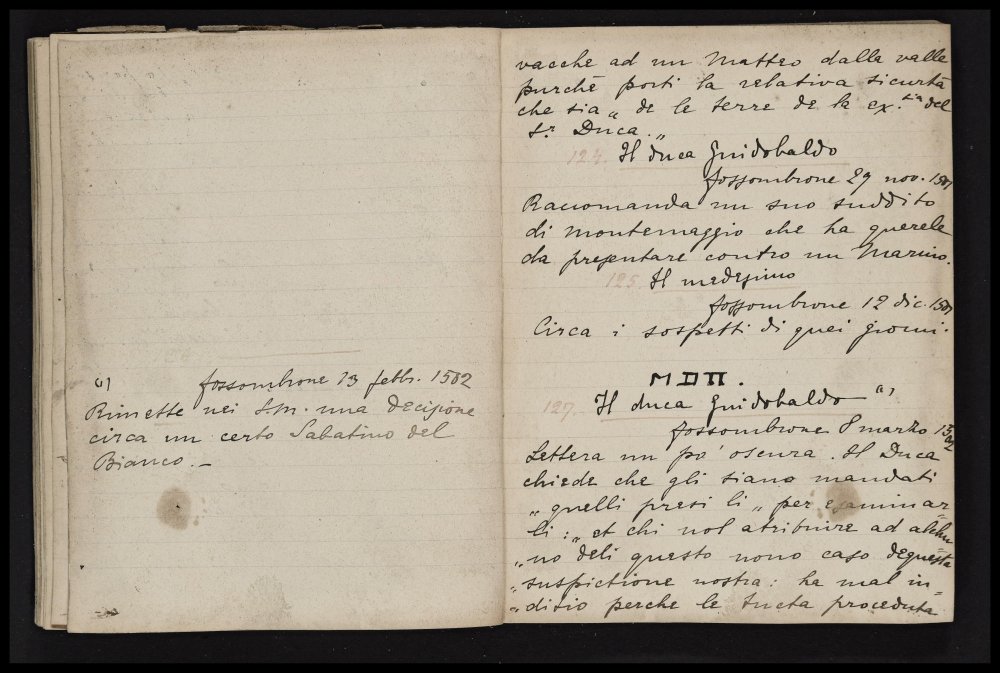 a)
fossombrone 13 febbr. 1502
Rimette nei Sm. una decisione
circa un certo Sabatino del
Bianco. –
vacche ad un Matteo dalla valle
purchè porti la relativa sicurtà
che sia „ de le terre de la ex.tia del
S.r Duca. „
124. Il duca Guidobaldo
fossombrone 29 nov. 1501
Raccomanda un suo suddito
di montemaggio che ha querele
da presentare contro un Marino.
125. Il medesimo
fossombrone 12 dic. 1501
Circa i sospetti di quei giorni.
MDII.
127. Il duca Guidobaldo a)
fossombrone 8 marzo 1502
Lettera un po' oscura. Il Duca
chiede che gli siano mandati
„ quelli presi li „ per esaminar=
li: „ et chi vol atribuire ad alchu
„ no deli questo novo caso de questa
„ suspictione nostra: ha mal in=
„ ditio perche le tucta proceduta